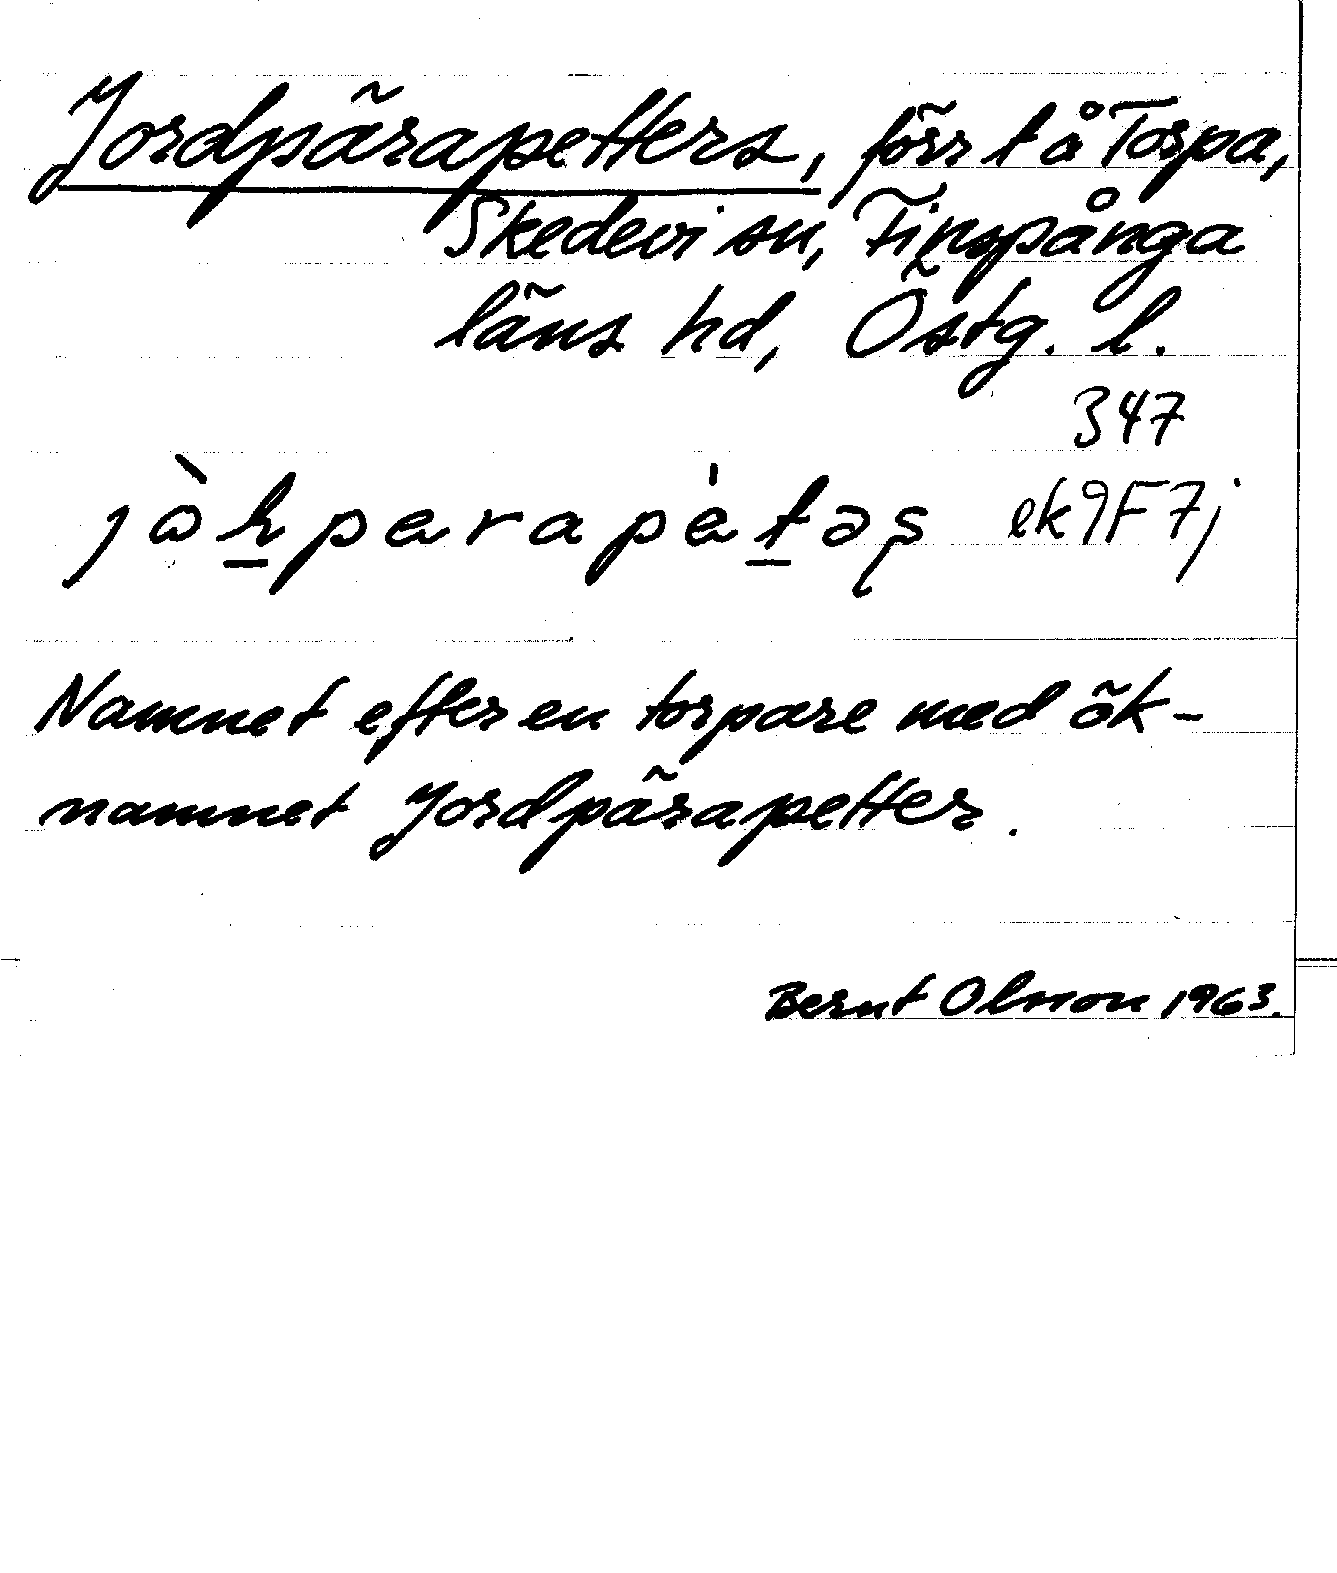 Jordpärapetters, förr t å Torpa,
Skedevi sn, Finspånga
läns hd, Östg. l.
347
jò̱ḵparapètəş ek9F7j
Namnet efter en torpare med ök-
namnet Jordpärapetter.
Bernt Olsson 1963.